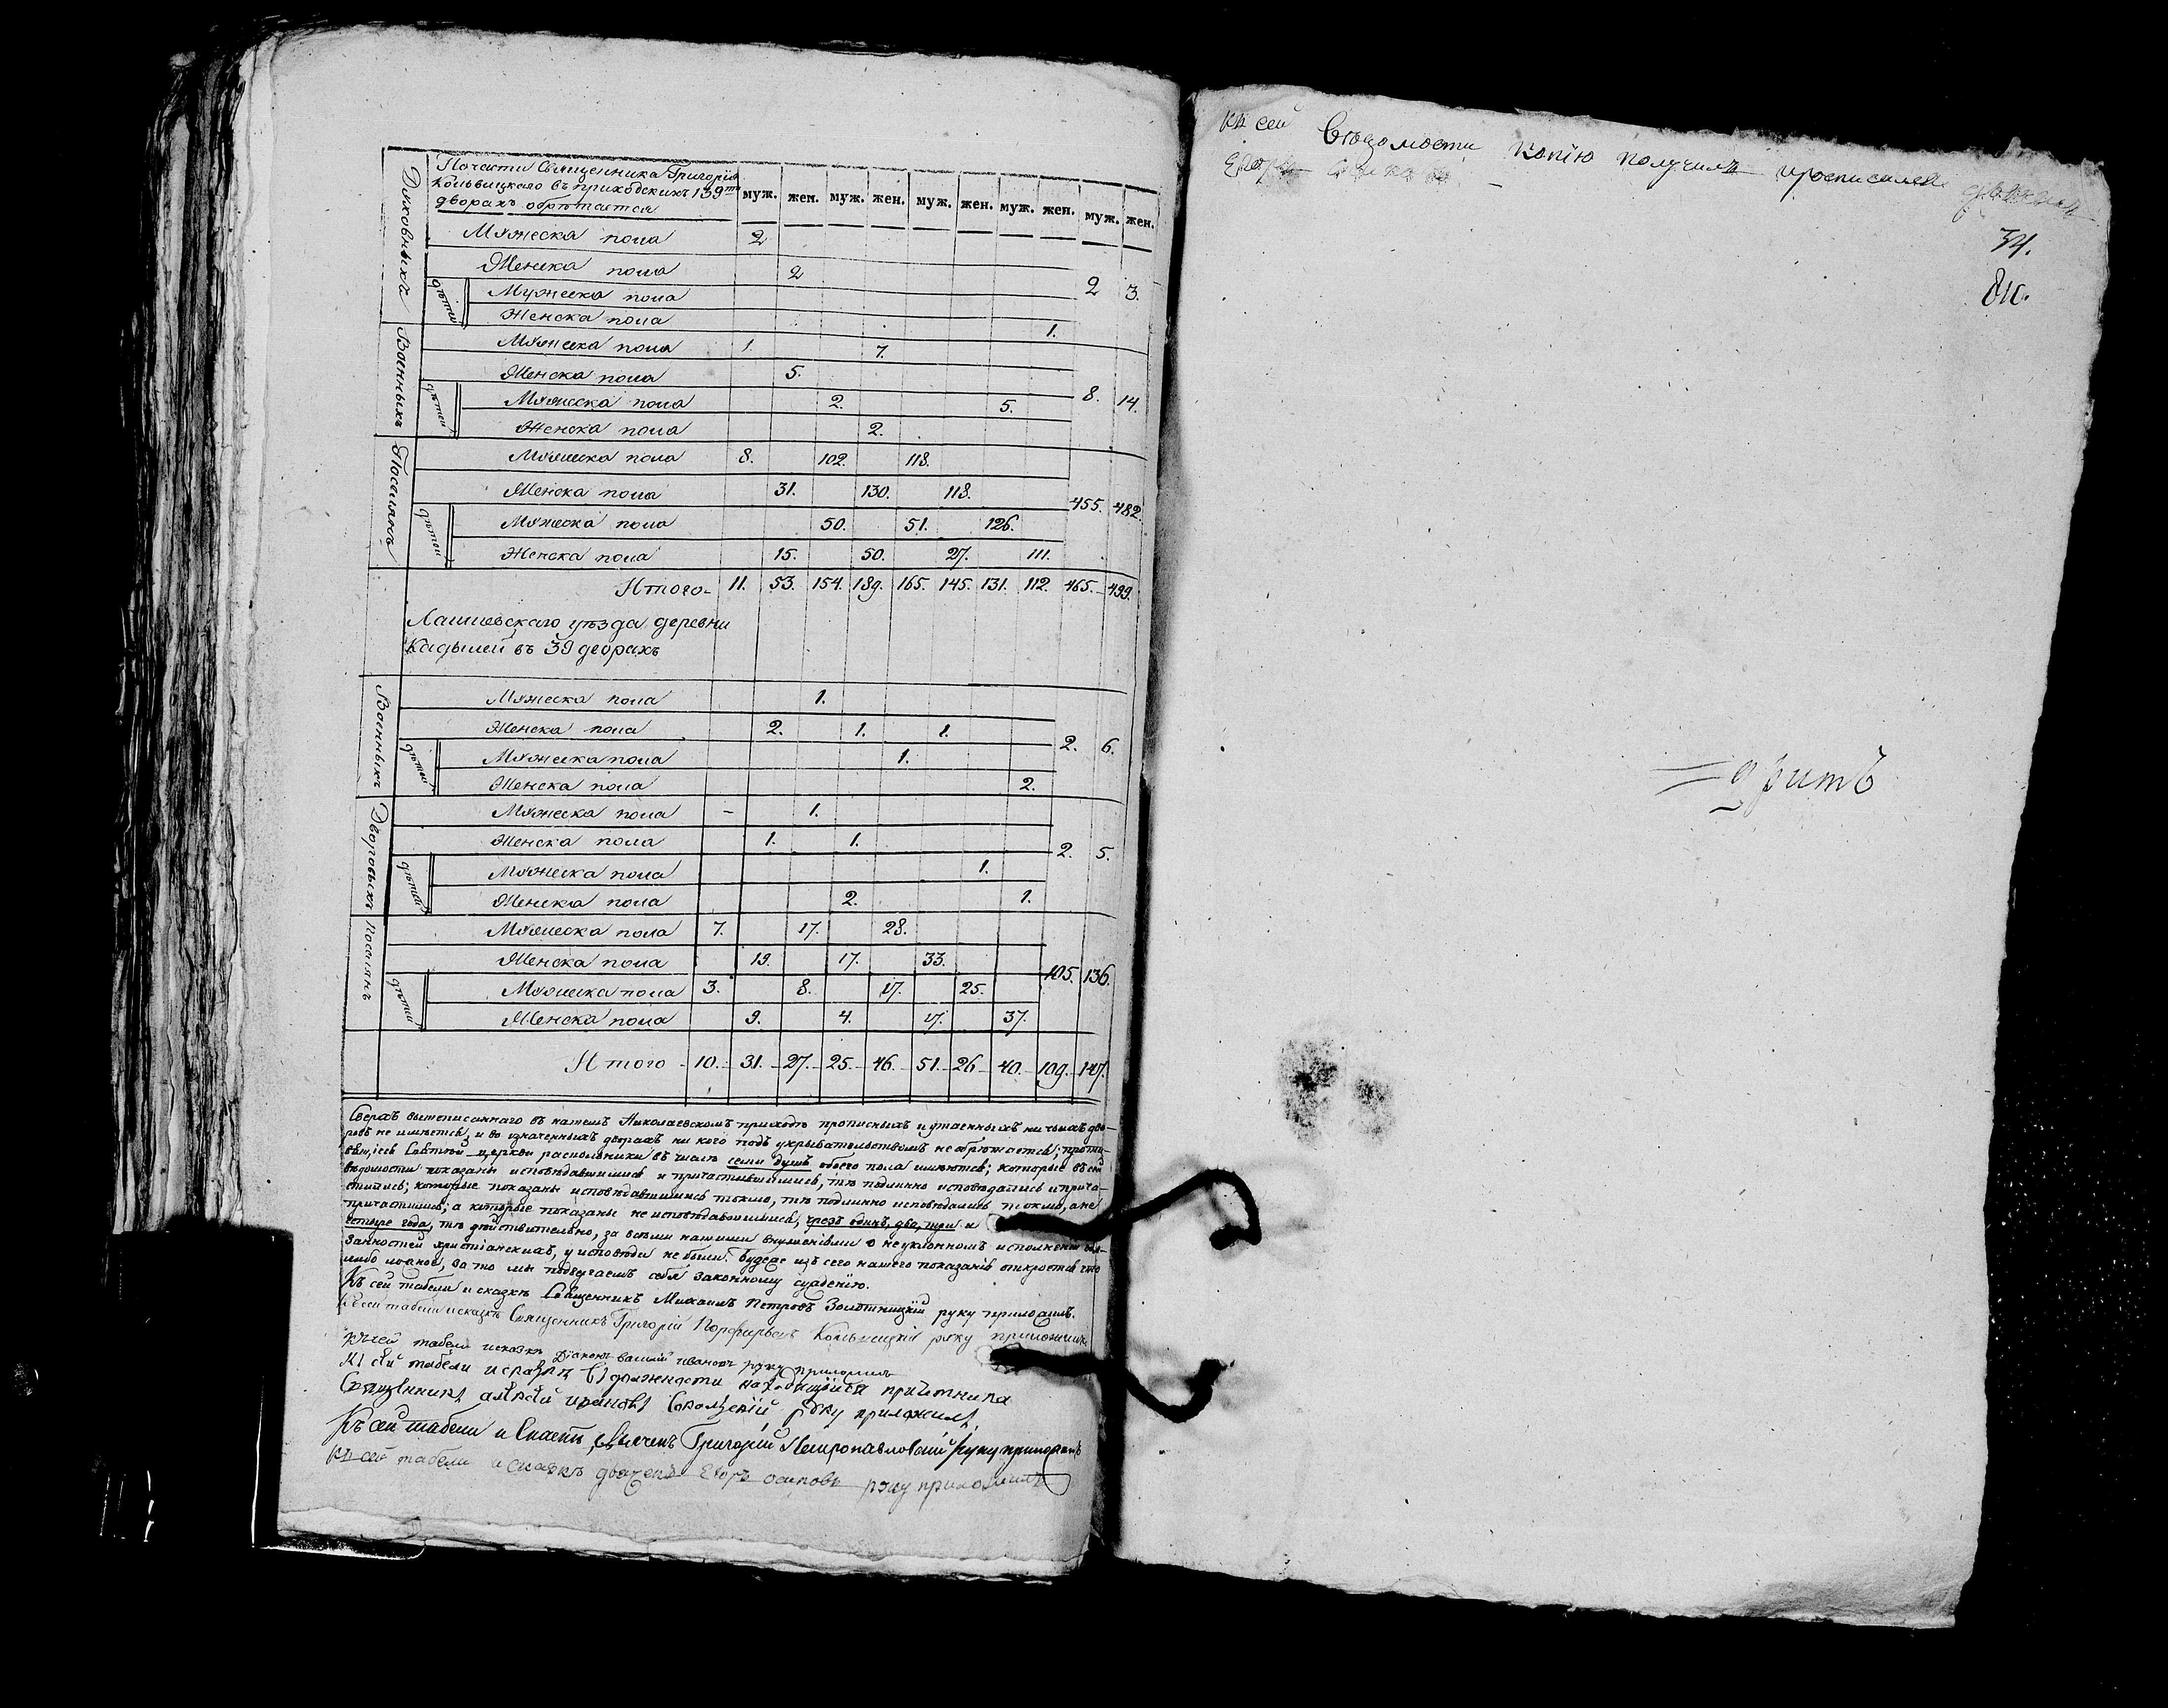 Почасти Священника Григорія
Кольвицкаго въ приходскихъ 139ти
дворахъ обрѣтается
муж. жен. муж. жен. муж. жен. муж. жен. муж. жен.
Духовныхъ
Мужеска пола 2
Женска пола 2
2 3.
дѣтей
Мужеска пола
Женска пола 1.
Военныхъ
Мужеска пола 1. 7.
Женска пола 5.
8. 14.
дѣтей
Мужеска пола 2. 5.
Женска пола 2.
Поселянъ
Мужеска пола 8. 102. 113.
Женска пола 31. 130. 118.
455. 482.
дѣтей
Мужеска пола 50. 51. 126.
Женска пола 15. 50. 27. 111.
Итого- 11. 53. 154. 189. 165. 145. 131. 112. 465. 499.
Лаишевскаго уѣзда деревни
Кадылей въ 39 дворахъ
Военныхъ
Мужеска пола 1.
Женска пола 2. 1. 1.
2. 6.
дѣтей
Мужеска пола 1.
Женска пола 2.
Дворовыхъ
Мужеска пола - 1.
Женска пола 1. 1.
2. 5.
дѣтей
Мужеска пола 1.
Женска пола 2. 1.
Поселянъ
Мужеска пола 7. 17. 28.
Женска пола 19. 17. 33.
105. 136.
дѣтей
Мужеска пола 3. 8. 17. 25.
Женска пола 9. 4. 17. 37.
Итого - 10. 31. 27. 25. 46. 51. 26 40. 109. 147.
Сверхъ вышеписаннаго въ нашемъ Николаевскомъ приходѣ прописныхъ и утаенныхъ ни чьихъ дво-
ровъ не имѣется, и во означенныхъ дворахъ ни кого подъ укрывательствомъ не обрѣтается; проти-
Святой церкви раскольники въ числѣ семи душъ обоего пола имѣются; которые въ сей
вѣдомости показаны исповѣдавшимися и причастившимися, тѣ подлинно исповѣдались и прича-
стились; которые показаны исповѣдавшимися токмо, тѣ подлинно исповѣдались токмо, а не
причастились; а которые показаны не исповѣдавшимися, чрезъ одинъ, два, три и
четыре года, тѣ дѣйствительно, за всѣми нашими внушеніями о неуклонномъ исполненіи обя-
занностей христіанскихъ, у исповѣди не были. Будеже изъ сего нашего показанія откроется что
либо иное, за то мы подвергаемъ себя законному сужденію.
Къ сей табели и сказкѣ Священникъ Михаилъ Петровъ Золотницкій руку приложилъ.
Къ сей табели и сказкѣ Священникъ Григорій Порфирьевъ Кольвицкій руку приложилъ
къ сей табели исказкѣ Діаконъ василій ивановъ руку приложилъ
Къ сей табели и сказкѣ въ должности находящійся причетника
Священникъ алексѣй ивановъ руку приложилъ
Къ сей табели и Сказкѣ дьячекъ Григорій Петропавловскій руку приложилъ
къ сей табели и сказкѣ дьячекъ Егоръ осиповъ руку приложилъ
къ сей вѣдомости копію получилъ
Егоръ
34.